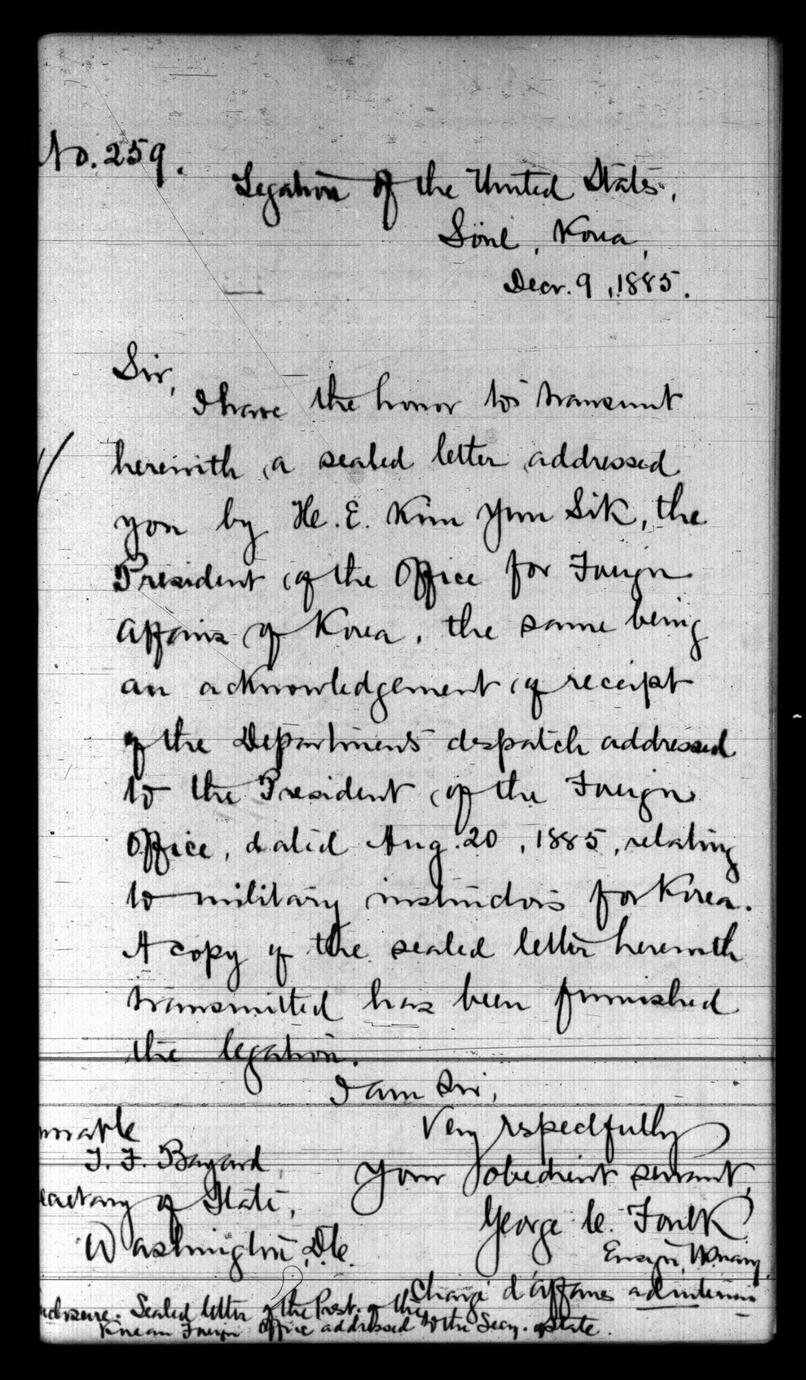 No. 259.
Legation of the United States,
Söul, Korea,
Decr. 9, 1885.
Sir,
I have the honor to transmit
herewith, a sealed letter addressed
you by He. E. Kim Yun Sik, the
President of the Office for Foreign
Affairs of Korea, the same being
an acknowledgement of receipt
of the Department's despatch addressed
to the President of the Foreign
Office, dated Aug. 20, 1885, relating
to military instructors for Korea.
A copy of the sealed letter herewith
transmitted has been furnished
the legation.
I am Sir,
Very respectfully
Your obedient servant,
George C. Foulk
Ensign, U.S. Navy
Chargé d'Affaires ad interim
norable
T. F. Bayard,
ecretary of State,
Washington, D.C.
nclosure. Sealed letter of the Prest. of the
Korean Foreign Office addressed to the Secy. of State.